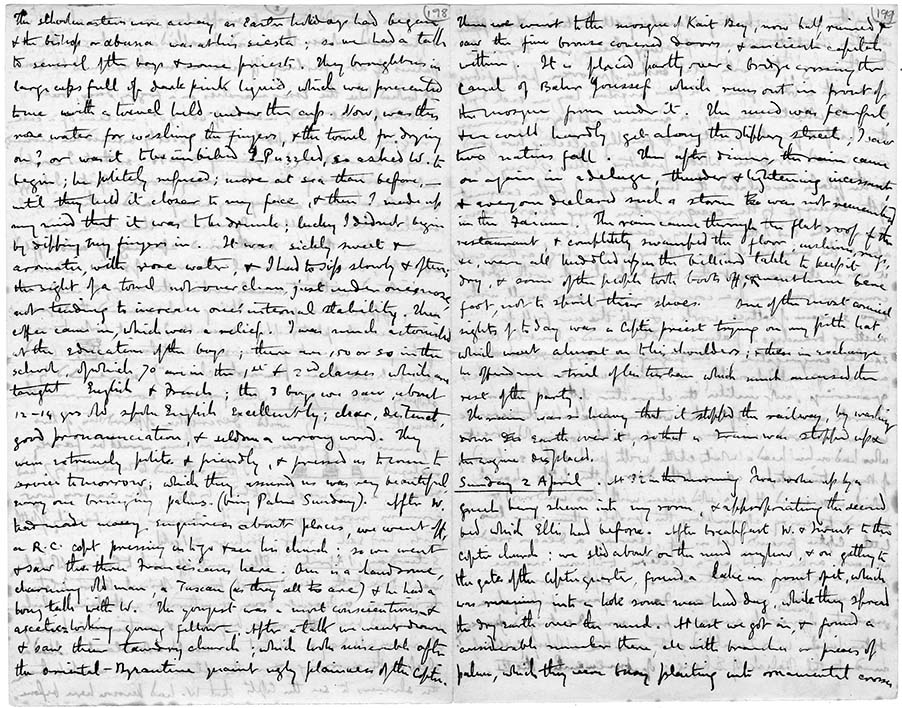 198
The schoolmasters were away as Easter holidays had begun
& the bishop or abuna was at his siesta; so we had a talk
to several of the boys & some priests. They brought us in
large cups full of dark pink liquid, which was presented
to me with a towel held under the cup. Now, was this
rose water for washing the fingers, & the towel for drying
on? or was it to be imbibed? Puzzled, so asked W. to
begin; he politely refused; more at sea than before,—
until they held it closer to my face, & then I made up
my mind that it was to be drunk; lucky I did not begin
by dipping my fingers in. It was sickly sweet &
aromatic, with rose water, & I had to sip slowly & often,
the sight of a towel not over clean just under one's nose
not tending to increase one's internal stability. Then
coffee came in, which was a relief. I was much astonished
at the education of the boys; there are 100 or so in the
school, of which 70 are in the 1st & 2nd classes which are
taught English & French; the 3 boys we saw, about
12-14 yrs old, spoke English excellently; clear, distinct,
good pronunciation, & seldom a wrong word. They
were extremely polite & friendly, & pressed us to come to
service tomorrow; which they assured us was very beautiful
every one bringing palms. (being Palm Sunday). After W.
had made many inquiries about places, we went off,
a R.C. Copt pressing us to go & see his church; so we went
& saw the three Franciscans here. One is a handsome,
charming old man, a Tuscan (as they all are) & he had a
long talk with W. The youngest was a most conscientious &
ascetic-looking young fellow. After a talk we went down
& saw their tawdry church; which looks miserable after
the oriental-Byzantine quaint ugly plainness of the Coptic.
199
Then we went to the mosque of Kait Bey, now half ruined &
saw the fine bronze covered doors & ancient capitals
within. It is placed partly over a bridge crossing the
canal of Bahr Youssef which runs out in front of
the mosque from under it. The mud was fearful
& we could hardly get along the slippery street; I saw
two natives fall. Then after dinner, the rain came
on again in a deluge, thunder & lightening incessant,
& everyone declared such a storm was not remembered
in the Faium. The rain came through the flat roof of the
restaurant, & completely swamped the floor; cushions, rugs,
&c, were all huddled up on the billiard table to keep it
dry, & some of the people took boots off, & went home bare
foot, not to spoil their shoes. One of the most comical
sights of today was a Coptic priest trying on my pith hat,
which went almost on to his shoulders; & then in exchange
he offered me a trial of his turban which much amused the
rest of the party.
The rain was so heavy that it stopped the railway, by washing
down the earth over it, so that a train was stopped up &
the engine displaced.
Sunday 2 April. At 3 in the morning I was woke up by a
greek being shewn into my room, & appropriating the second
bed which Ellis had before. After breakfast W. & I went to the
Coptic church: we slid about on the mud anyhow, & on getting to
the gate of the Coptic quarter, found a lake in front of it, which
was running into a hole some men had dug, while they spread
the dry earth over the mud. At last we got in, & found a
considerable number there, all with branches or pieces of
palms, which they were busy plaiting into ornamental crosses